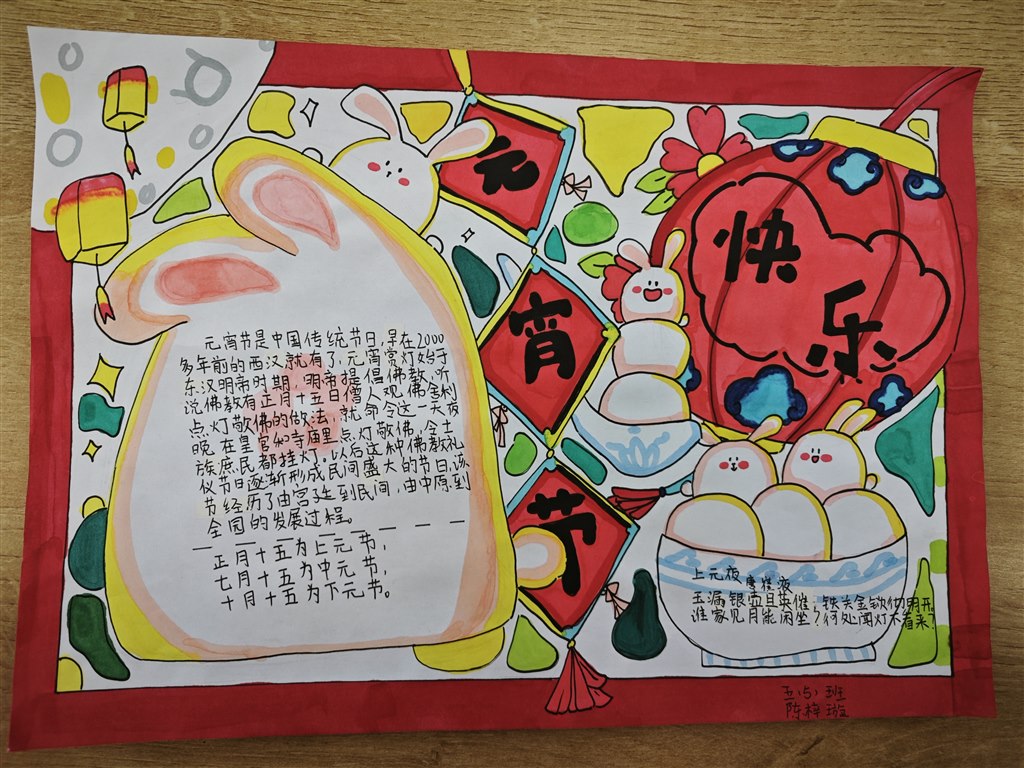 元
宵
节
快
乐
元宵节是中国传统节日,早在2000
多年前的西汉就有了,元宵常灯始于
东汉明帝时期,明帝提倡佛教,听
说佛教有正月十五日僧人观佛舍利
点灯敬佛的做法,就命令这一天夜
晚在皇宫和寺庙里点灯敬佛,令士
族庶民都挂灯。以后这种佛教礼
仪节日逐渐形成民间盛大的节日,该
节经历了由宫廷到民间,由中原到
全国的发展过程。
正月十五为上元节,
七月十五为中元节,
十月十五为下元节。
上元夜 唐崔液
玉漏银壶且莫催,铁关金锁彻明开。
谁家见月能闲坐?何处闻灯不看来?
五(5)班
陈梓璇